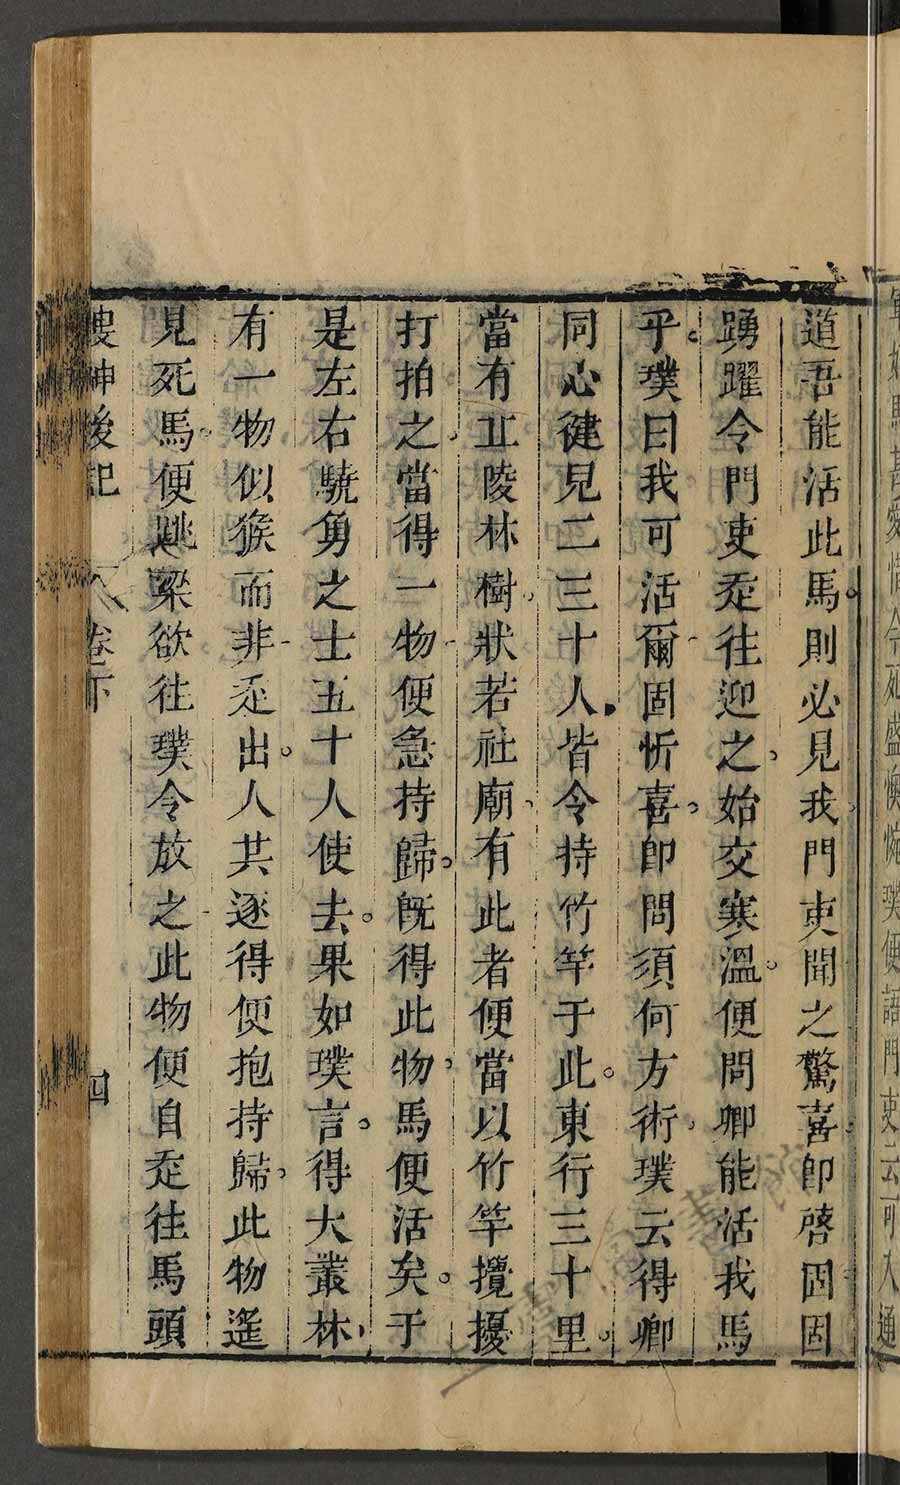 軍好馬甚愛惜今死盛懊惋璞便語門吏云可入通
道吾能活此馬則必見我門吏聞之驚喜卽啓固固
踴躍令門吏走往迎之始交寒溫便問卿能活我馬
乎璞曰我可活爾固忻喜卽問須何方術璞云得卿
同心健見二三十人皆令持竹竿于此東行三十里
當有丘陵林樹狀若社廟有此者便當以竹竿攪擾
打拍之當得一物便急持歸旣得此物馬便活矣于
是左右驍勇之士五十人使去果如璞言得大叢林
有一物似猴而非走出人共逐得便抱持歸此物遙
見死馬便跳梁欲往璞令放之此物便自走往馬頭
搜神後記 卷下 四